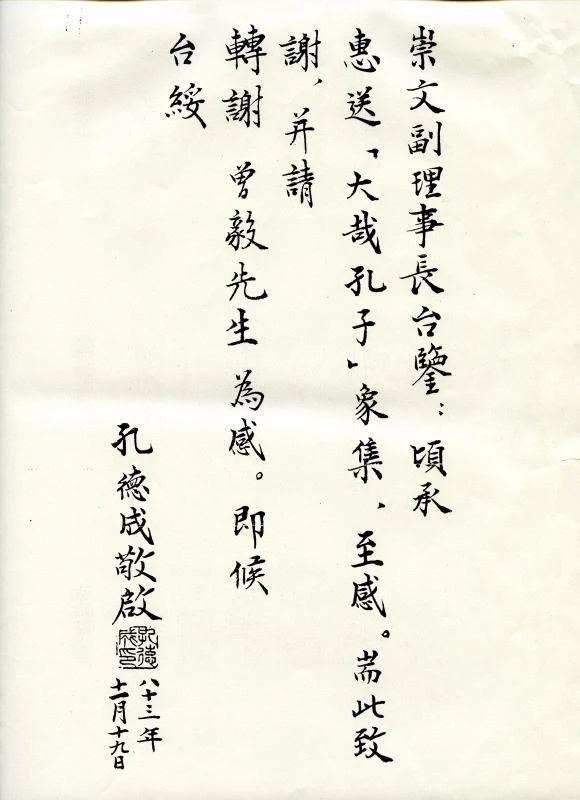 崇文副理事長台鑒：頃承
惠送「大哉孔子」象集，至感。耑此致
謝，并請
轉謝 曾毅先生 為感。即候
台綏
孔德成敬啟
孔德成印
八十三年
十一月十九日